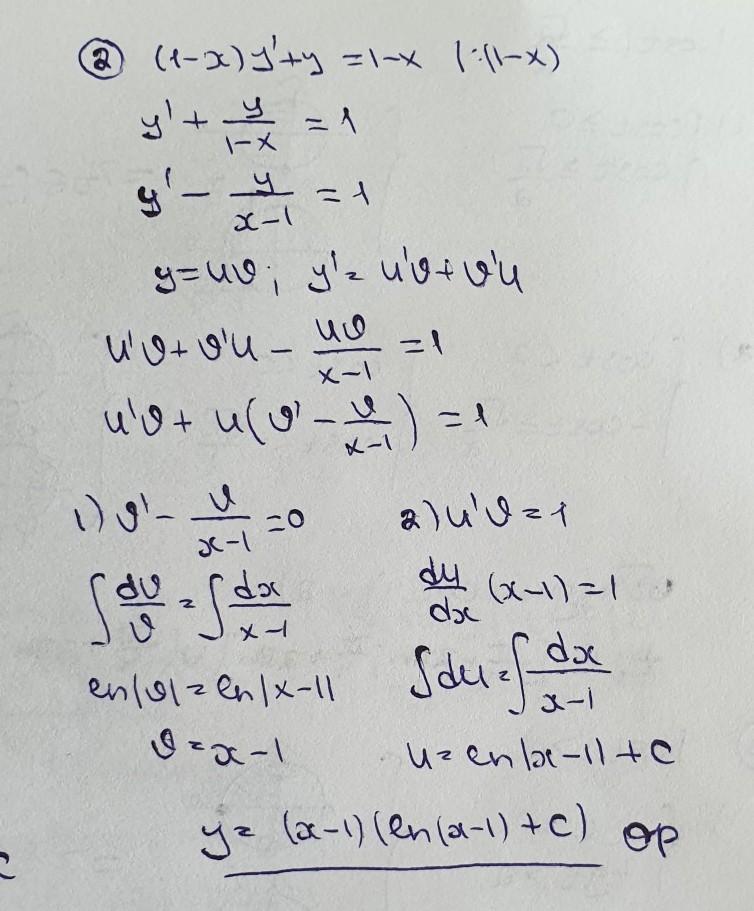 ② (1-x)y'+y = 1-x |:(1-x)
y' + y/(1-x) = 1
y' - y/(x-1) = 1
y=uϑ; y'= u'ϑ+ϑ'u
u'ϑ+ϑ'u - uϑ/(x-1) = 1
u'ϑ+ u(ϑ' - ϑ/(x-1)) = 1
1) ϑ' - ϑ/(x-1) = 0
∫dϑ/ϑ = ∫dx/(x-1)
ln|ϑ| = ln|x-1|
ϑ = x-1
2) u'ϑ = 1
du/dx (x-1) = 1
∫du = ∫dx/(x-1)
u = ln|x-1| + C
y = (x-1)(ln(x-1) + C) op
c